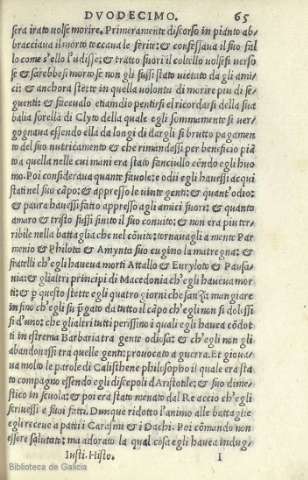 DVODECIMO. 65
sera irato volse morire. Primeramente discorso in pianto ab-
bracciaua il morto toccaua le ferite: & confessaua il suo fal
lo come s'ello l'udisse: & tratto fuori il coltello volsesi verso
se & sarebbesi morto se non gli fussi stato uietato da gli ami-
ci: & anchora stette in quella volontà di morire piu di se-
guenti: & succedette pentirsi el ricordarsi della sua
balia sorella di Clyto della quale egli sommamente si ver-
gognaua essendo ella da longi di dargli si brutto pagamen
to del suo nutricamento & che rimandassi per beneficio pia
to a quella nelle cui mani era stato fanciullo cō egli huo
mo. Poi consideraua quante fauole: & odii egli hauessi acqui
stati nel suo cāpo: & appresso le uinte genti: & quant'odio:
& paura hauessi fatto appresso agli amici suoi: & quanto
amaro & tristo fussi finito il suo conuito: & non era piu ter-
ribile nella battaglia che nel cōuito: tornauagli a mente Par
menio & Philota & Amynta suo cugino la matregna: &
fratelli ch'egli haueua morti Attallo & Euryloto & Pausa-
nia: & gli altri principi di Macedonia ch'egli haueua mor
ti: & p questo stette egli quatro giorni che sanza mangiare
in fino ch'egli fu p̄gato da tutto il cāpo ch'egli non si dolessi
si d'uno: che gli altri tutti perissino i quali egli hauea cōdot
ti in estrema Barbaria tra gente odiosa: & ch'egli non gli
abandonassi tra quelle genti prouocate a guerra. Et gioua-
ua molto le parole di Calisthene philosopho il quale era sta
to compagno essendo egli discepol d'Aristotle: & suo dime-
stico in scuola: & poi era stato menato dal Re accio ch'egli
scriuessi a suoi fatti. Dunque ridotto l'animo alle battaglie
egli receue a patti i Carasmi & i Dachi. Poi cōmando non
essere salutato: ma adorato la qual cosa egli hauea indug-
Iusti. Histo. I
Biblioteca de Galicia